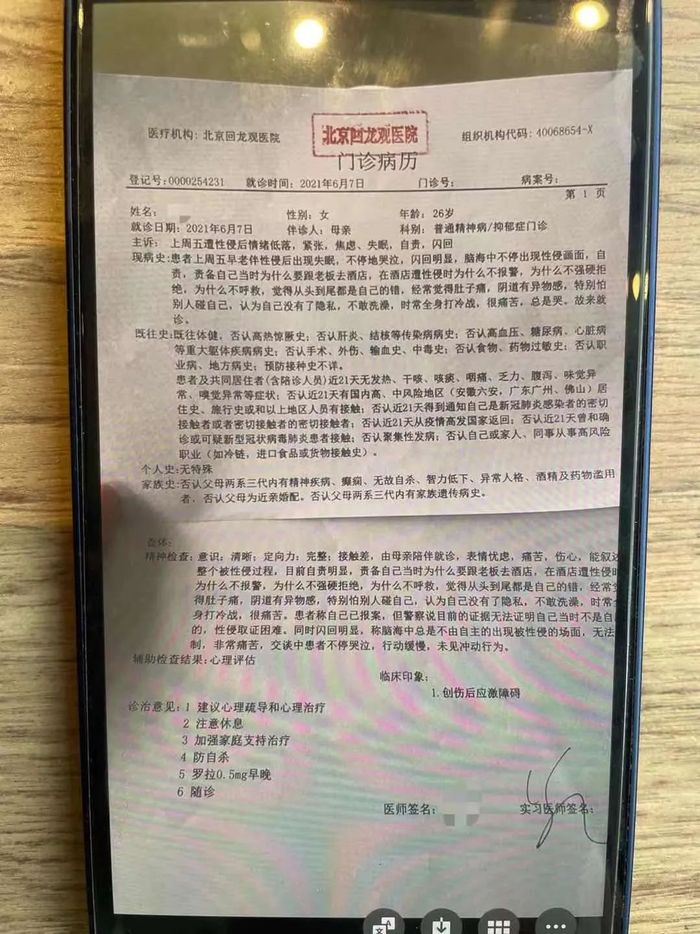 医疗机构: 北京回龙观医院
北京回龙观医院
组织机构代码: 40068654-X
门诊病历
登记号:0000254231 就诊时间: 2021年6月7日 门诊号: 病案号:
第 1 页
姓名: 性别: 女 年龄: 26岁
就诊日期: 2021年6月7日 伴诊人: 母亲 科别: 普通精神病/抑郁症门诊
主诉: 上周五遭性侵后情绪低落, 紧张, 焦虑、失眠, 自责, 闪回
现病史:患者上周五早老伴性侵后出现失眠, 不停地哭泣, 闪回明显, 脑海中不停出现性侵画面, 自
责, 责备自己当时为什么要跟老板去酒店, 在酒店遭性侵时为什么不报警, 为什么不强硬拒
绝, 为什么不呼救, 觉得从头到尾都是自己的错, 经常觉得肚子痛, 阴道有异物感, 特别怕
别人碰自己, 认为自己没有了隐私, 不敢洗澡, 时常全身打冷战, 很痛苦, 总是哭。故来就
诊。
既往史:既往体健, 否认高热惊厥史; 否认肝炎、结核等传染病病史; 否认高血压、糖尿病、心脏病
等重大躯体疾病病史; 否认手术、外伤、输血史、中毒史; 否认食物、药物过敏史; 否认职
业病、地方病史; 预防接种史不详。
患者及共同居住者(含陪诊人员)近21天无发热、干咳、咳痰、咽痛、乏力、腹泻、味觉异
常、嗅觉异常等症状; 否认近21天有国内高、中风险地区(安徽六安, 广东广州、佛山)居
住史、旅行史或和以上地区人员有接触; 否认近21天得到通知自己是新冠肺炎感染者的密切
接触者或者密切接触者的密切接触者; 否认近21天从疫情高发国家返回; 否认近21天曾和确
诊或可疑新型冠状病毒肺炎患者接触; 否认聚集性发病; 否认自己或家人、同事从事高风险
职业(如冷链, 进口食品或货物接触史)。
个人史:无特殊
家族史:否认父母两系三代内有精神疾病、癫痫、无故自杀、智力低下、异常人格、酒精及药物滥用
者, 否认父母为近亲婚配。否认父母两系三代内有家族遗传病史。
查体:
精神检查: 意识: 清晰; 定向力: 完整; 接触差, 由母亲陪伴就诊, 表情忧虑, 痛苦, 伤心, 能叙述
整个被性侵过程, 目前自责明显, 责备自己当时为什么要跟老板去酒店, 在酒店遭性侵时
为什么不报警, 为什么不强硬拒绝, 为什么不呼救, 觉得从头到尾都是自己的错, 经常觉
得肚子痛, 阴道有异物感, 特别怕别人碰自己, 认为自己没有了隐私, 不敢洗澡, 时常全
身打冷战, 很痛苦。患者称自己已报案, 但警察说目前的证据无法证明自己当时不是自
的, 性侵取证困难。同时闪回明显, 称脑海中总是不由自主的出现被性侵的场面, 无法
制, 非常痛苦, 交谈中患者不停哭泣, 行动缓慢, 未见冲动行为。
辅助检查结果:心理评估
临床印象:
1.创伤后应激障碍
诊治意见: 1 建议心理疏导和心理治疗
2 注意休息
3 加强家庭支持治疗
4 防自杀
5 罗拉0.5mg早晚
6 随诊
医师签名: 实习医师签名: